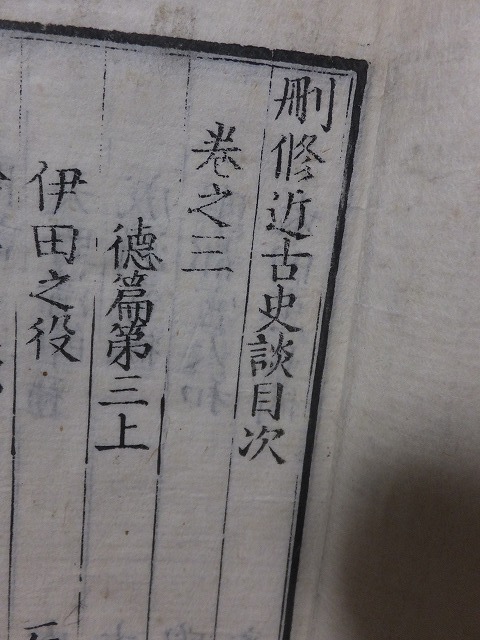 刪修近古史談目次
卷之三
德篇第三上
伊田之役